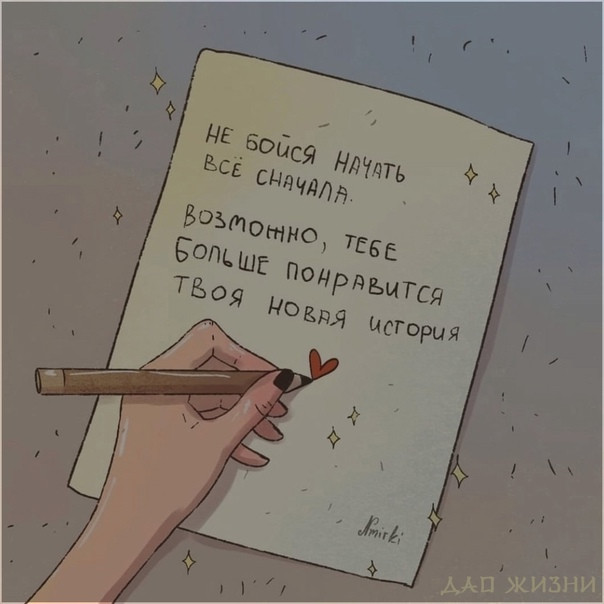 НЕ БОЙСЯ НАЧАТЬ
ВСЁ СНАЧАЛА.
ВОЗМОЖНО, ТЕБЕ
БОЛЬШЕ ПОНРАВИТСЯ
ТВОЯ НОВАЯ ИСТОРИЯ
Nmirki
ДАО ЖИЗНИ